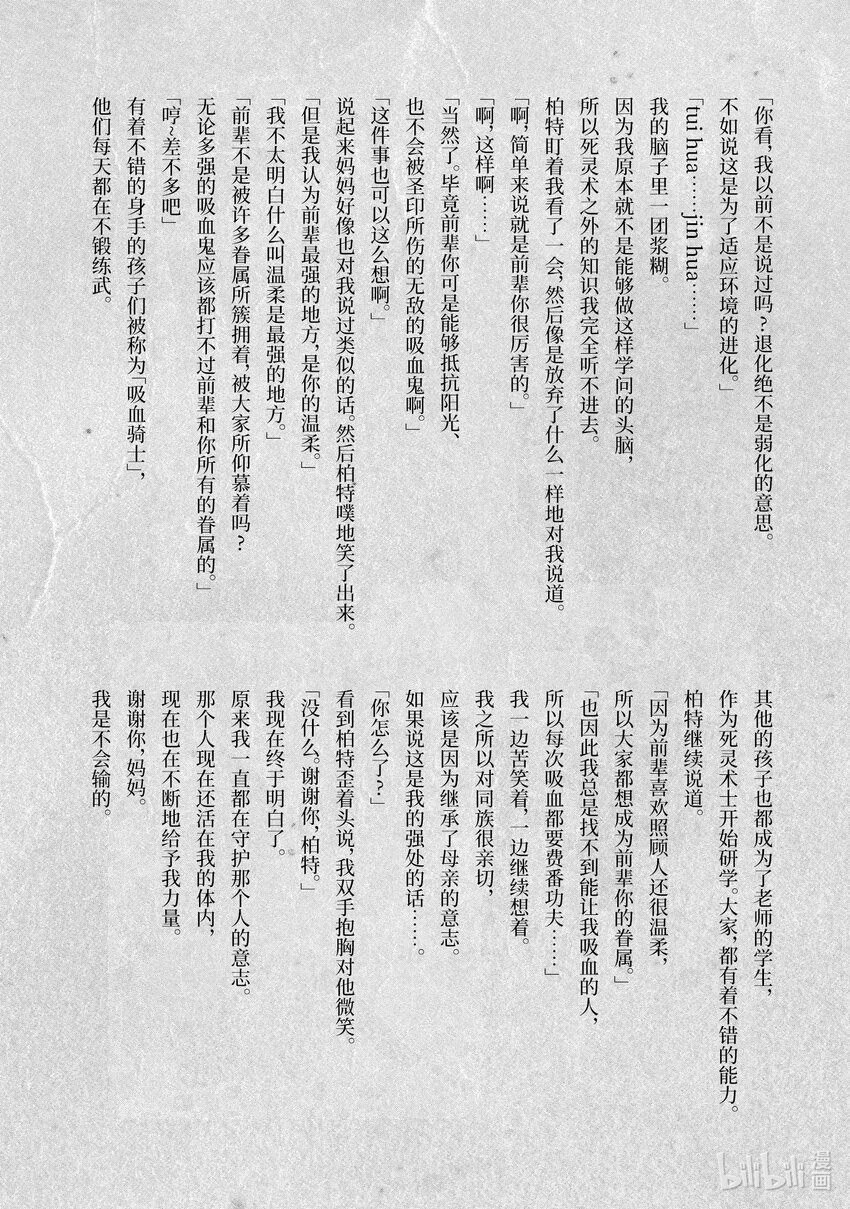 「你看，我以前不是说过吗？退化绝不是弱化的意思。
不如说这是为了适应环境的进化。」
「tui hua……jin hua……」
我的脑子里一团浆糊。
因为我原本就不是能够做这样学问的头脑，
所以死灵术之外的知识我完全听不进去。
柏特盯着我看了一会，然后像是放弃了什么一样地对我说道。
「啊，简单来说就是前辈你很厉害的。」
「啊，这样啊……」
「当然了。毕竟前辈你可是能够抵抗阳光、
也不会被圣印所伤的无敌的吸血鬼啊。」
「这件事也可以这么想啊。」
说起来妈妈好像也对我说过类似的话。然后柏特噗地笑了出来。
「但是我认为前辈最强的地方，是你的温柔。」
「我不太明白什么叫温柔是最强的地方。」
「前辈不是被许多眷属所簇拥着，被大家所仰慕着吗？
无论多强的吸血鬼应该都打不过前辈和你所有的眷属的。」
「哼~差不多吧」
有着不错的身手的孩子们被称为「吸血骑士」，
他们每天都在不锻练武。
其他的孩子也都成为了老师的学生，
作为死灵术士开始研学。大家，都有着不错的能力。
柏特继续说道。
「因为前辈喜欢照顾人还很温柔，
所以大家都想成为前辈你的眷属。」
「也因此我总是找不到能让我吸血的人，
所以每次吸血都要费番功夫……」
我一边苦笑着，一边继续想着。
我之所以对同族很亲切，
应该是因为继承了母亲的意志。
如果说这是我的强处的话……。
「你怎么了？」
看到柏特歪着头说，我双手抱胸对他微笑。
「没什么。谢谢你，柏特。」
我现在终于明白了。
原来我一直都在守护那个人的意志。
那个人现在还活在我的体内，
现在也在不断地给予我力量。
谢谢你，妈妈。
我是不会输的。
bilibili漫画